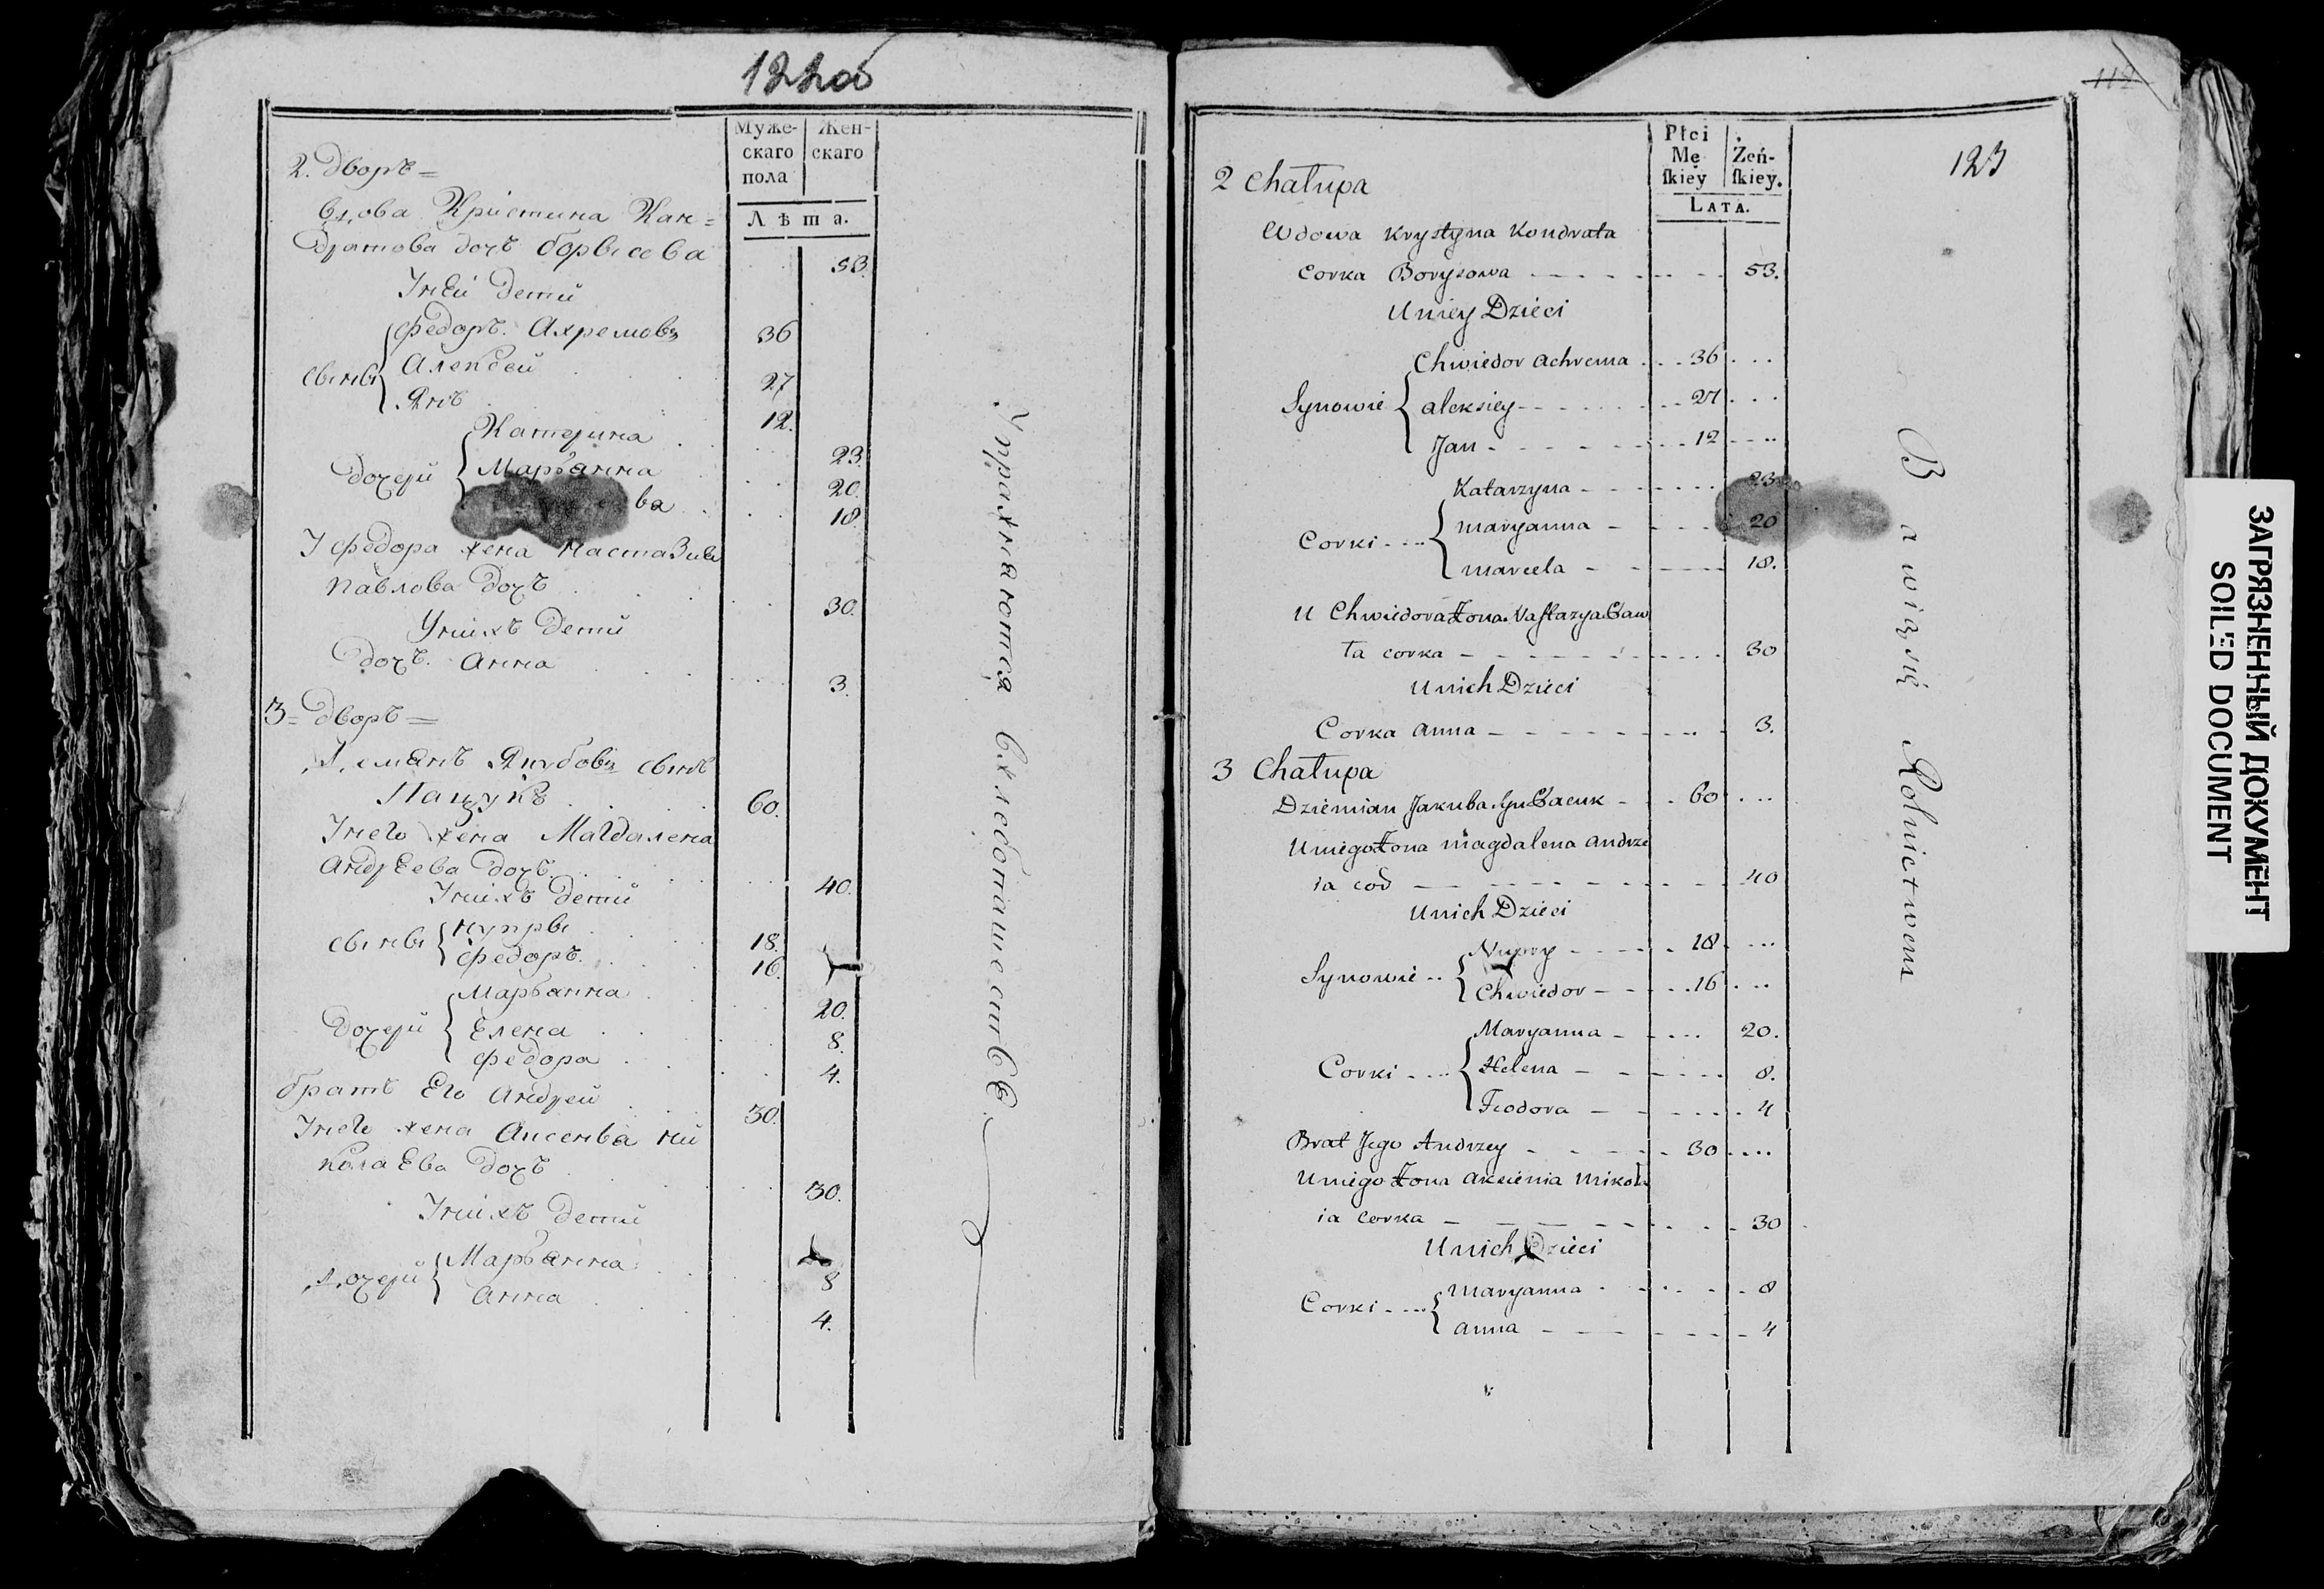 122об
Муже-
скаго
пола
Жен-
скаго
Лѣта.
2. Дворъ =
вдова Кристина Кан=
Дратова дочъ борысова 53.
Унеи Дети
Сыны
Федоръ Ахремовъ 36
Алексей 27
Янъ 12.
Дочери
Катерина 23.
Марьянна 20.
18
У Федора жена Настазия
Павлова Дочъ 30.
Униxъ Дети
Дочъ Анна 3.
3 = Дворъ =
Демянъ Якубовъ сынъ
Пацукъ 60.
Унего жена Магдалена
Андреева Дочъ 40.
Унихъ Дети
Сыны
Нупры 18.
Федоръ 16.
Дочери
Марьянна 20.
Елена 8.
Федора 4.
братъ Его Андрей 30.
Унего жена Аксенья Ни
колаева Дочъ 30.
Унихъ Дети
Дочери
Марьянна 8
Анна 4.
Упражняются вхлебопашестве
117
123
Płci
Mę
ſkiey
Żeń-
ſkiey.
LATA.
2 Chałupa
Wdowa Krystyna Kondrata
Corka Borysowa 53.
Uniey Dzieci
Synowie
Chwiedor Achrema 36
Aleksiey 27
Jan 12
Corki
Katarzyna 23
Maryanna 20
Marcela 18.
U Chwiedora Żona Nastazya Paw
ła corka 30
Unich Dzieci
Corka Anna 3.
3 Chałupa
Dziemian Jakuba Syn Pacuk 60
Uniego Żona Magdalena Andrze
ia cor 40
Unich Dzieci
Synowie
Nupry 18
Chwiedor 16
Corki
Maryanna 20.
Helena 8.
Teodora 4
Brat Jego Andrzey 30
Uniego Żona Aksienia Mikoła
ia corka 30
Unich Dzieci
Corki
Maryanna 8
Anna 4
Bawią się Rolnictwem
ЗАГРЯЗНЕННЫЙ ДОКУМЕНТ
SOILED DOCUMENT